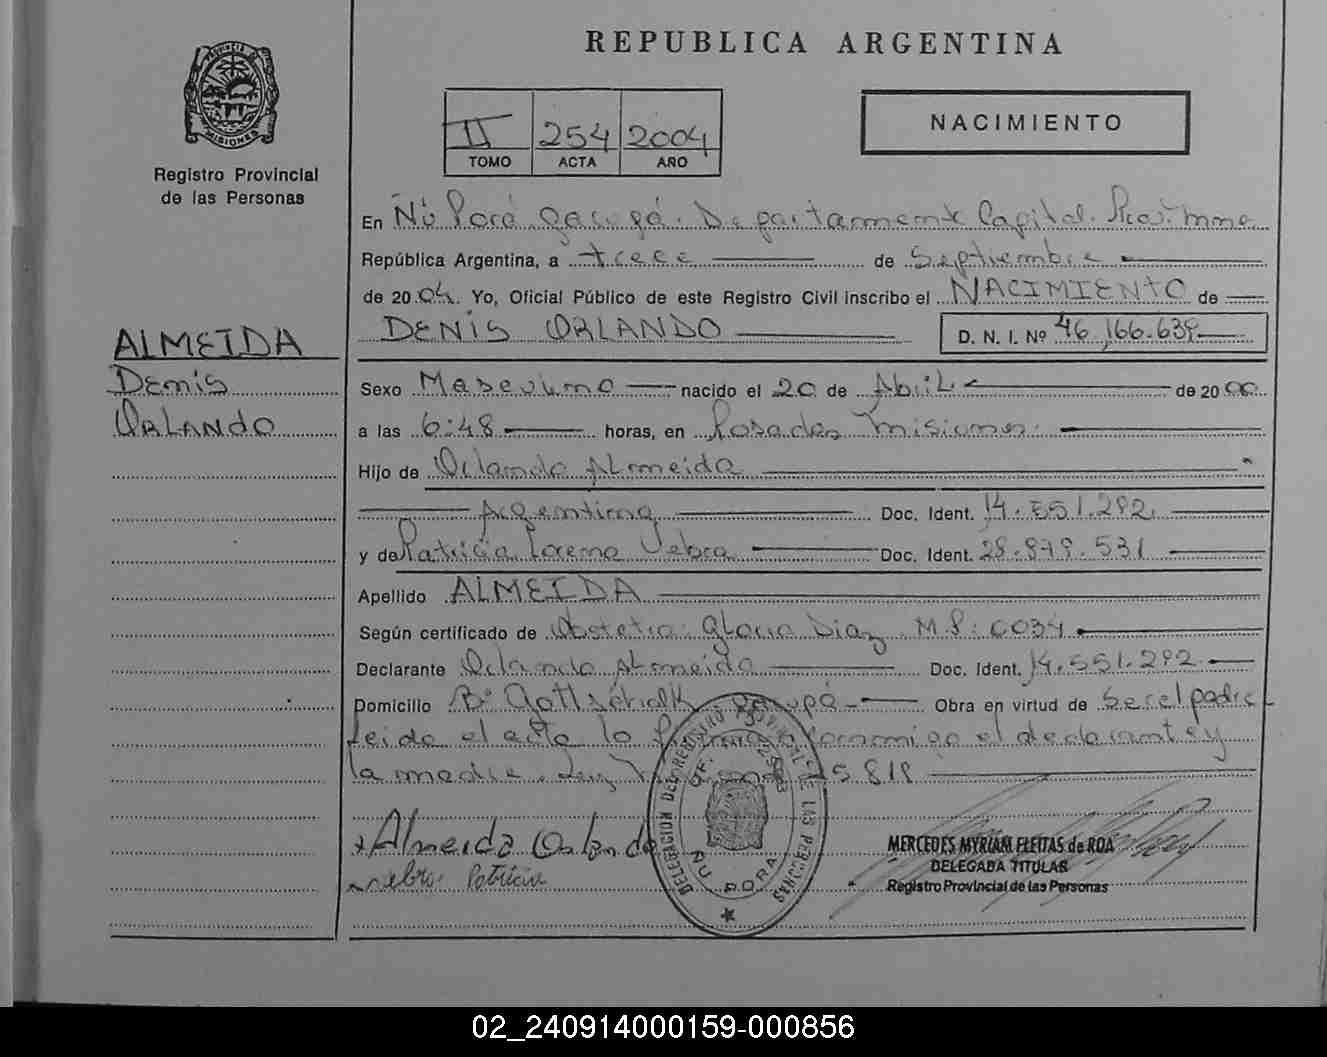 REPUBLICA ARGENTINA
PROVINCIA DE MISIONES
Registro Provincial
de las Personas
II 254 2004
TOMO ACTA AÑO
NACIMIENTO
En Ñú Porá Garupá. Departamento Capital. Mnes
República Argentina, a trece de Septiembre
de 2004. Yo, Oficial Público de este Registro Civil inscribo el NACIMIENTO de
DENIS ORLANDO D. N. I. Nº 46.166.639
ALMEIDA
Denis
ORLANDO
Sexo Masculino nacido el 20 de Abril de 20 00
a las 6:48 horas, en Posadas Misiones.
Hijo de Orlando Almeida
Argentina Doc. Ident. 14.551.292
y de Patricia Lorena Doc. Ident. 28.879.531
Apellido ALMEIDA
Según certificado de Obstetra: Gloria Diaz M.P: 0034
Declarante Orlando Almeida Doc. Ident. 14.551.292
Domicilio Bº Garupá Obra en virtud de Ser el padre
Leida el acta la conmigo el declarante y
la madre. Ley 25818
Almeida Orlando
Patricia
DELEGACION DEL REGISTRO PROVINCIAL DE LAS PERSONAS
ÑU PORA
MERCEDES MYRIAM FLEITAS de ROA
DELEGADA TITULAR
Registro Provincial de las Personas
02_240914000159-000856